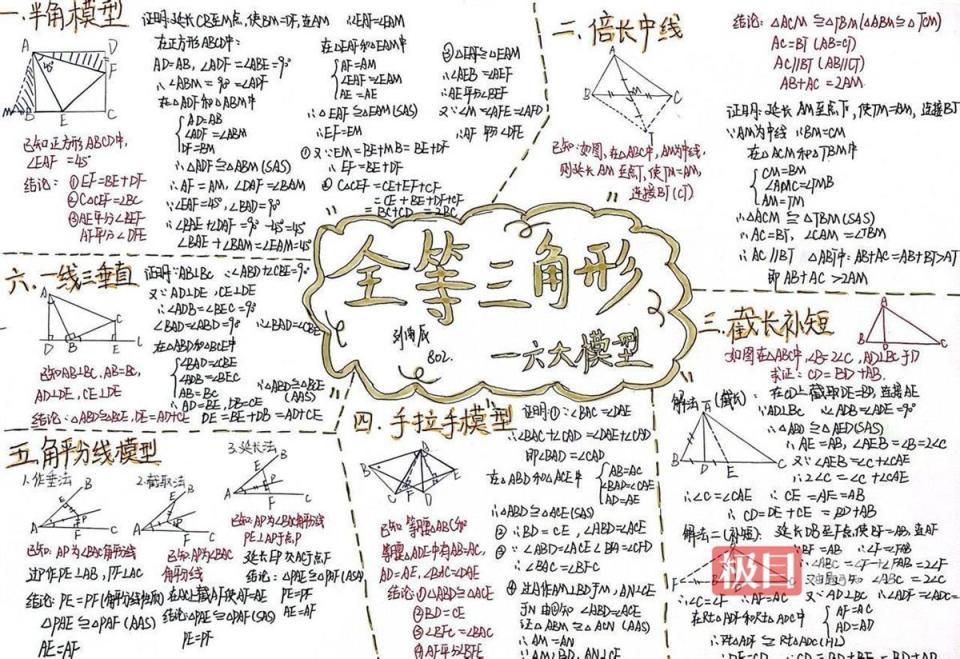 一.半角模型
A
D
45°
F
M
B
E
C
已知正方形ABCD中,
∠EAF=45°
结论: ①EF=BE+DF
②C△CEF=2BC
③AE平分∠BEF
AF平分∠DFE
证明:延长CB至M点,使BM=DF,连AM
在正方形ABCD中:
AD=AB, ∠ADF=∠ABE=90°
∴∠ABM=90°=∠ADF
在△ADF和△ABM中
AD=AB
∠ADF=∠ABM
DF=BM
∴△ADF≌△ABM (SAS)
∴AF=AM, ∠DAF=∠BAM
∵∠EAF=45°, ∠BAD=90°
∴∠BAE+∠DAF=90°-45°=45°
∠BAE+∠BAM=∠EAM=45°
∴∠EAF=∠EAM
在△EAF和△EAM中
AF=AM
∠EAF=∠EAM
AE=AE
∴△EAF≌△EAM(SAS)
∴EF=EM
①又∵EM=BE+MB=BE+DF
∴EF=BE+DF
②C△CEF=CE+EF+CF
=CE+BE+DF+CF
=BC+CD=2BC
③△EAF≌△EAM
∴∠AEB=∠AEF
∴AE平分∠BEF
又∵∠M=∠AFE=∠AFD
∴AF平分∠DFE
二.倍长中线
A
B
M
C
T
已知:如图,在△ABC中,AM为中线,
则延长AM至点T,使TM=AM,
连接BT(CT)
结论: △ACM≌△TBM(△ABM≌△TCM)
AC=BT (AB=CT)
AC∥BT (AB∥CT)
AB+AC=2AM
证明:延长AM至点T,使TM=AM,连接BT
∵AM为中线 ∴BM=CM
在△ACM和△TBM中
CM=BM
∠AMC=∠TMB
AM=TM
∴△ACM≌△TBM(SAS)
∴AC=BT, ∠CAM=∠TBM
∴AC∥BT △ABT中:AB+AC=AB+BT>AT
即AB+AC>2AM
全等三角形
802.
一六大模型
六.一线三垂直
A
C
D
B
E
已知AB⊥BC, AB=BC,
AD⊥DE, CE⊥DE
结论: △ABD≌△BCE, DE=AD+CE
证明:∵AB⊥BC ∴∠ABD+∠CBE=90°
又∵AD⊥DE, CE⊥DE
∴∠ADB=∠BEC=90°
∠BAD+∠ABD=90° ∴∠BAD=∠CBE
在△ABD和△BCE中
∠BAD=∠CBE
∠ADB=∠BEC
AB=BC
∴△ABD≌△BCE
(AAS)
∴AD=BE, DB=CE
DE=BE+DB=AD+CE
三.截长补短
A
B
D
C
如图在△ABC中,∠B=2∠C, AD⊥BC于D
求证: CD=BD+AB.
解法一(截长)
A
B
D
E
C
在CD上截取DE=BD,连接AE
∵AD⊥BC ∴∠ADB=∠ADE=90°
∴△ABD≌△AED(SAS)
∴AE=AB, ∠AEB=∠B=2∠C
又∵∠AEB=∠C+∠CAE
∴2∠C=∠C+∠CAE
∴∠C=∠CAE ∴CE=AE=AB
∴CD=DE+CE=BD+AB
解法二(补短):
延长DB至F点,使BF=AB,连AF
∴∠F=∠FAB
∴∠C=∠F ∴AF=AC
又∵AD⊥BC ∴∠ADF=∠ADC=
在Rt△ADF和Rt△ADC中
AF=AC
AD=AD
∴Rt△ADF≌Rt△ADC(HL)
极目
五.角平分线模型
1.作垂法
2.截取法
3.延长法
已知: AP为∠BAC角平分线
过P作PE⊥AB, PF⊥AC
结论: PE=PF(角平分线性质)
△PAE≌△PAF(AAS)
AE=AF
已知AP为∠BAC
角平分线
在AC上截AF使AF=AE
结论△PAE≌△PAF(SAS)
PE=PF
已知AP为∠BAC角平分线
PE⊥AP于点P
延长EP交AC于点F
结论: △PAE≌△PAF(ASA)
PE=PF
AE=AF
四.手拉手模型
已知:等腰△ABC和
等腰△ADE中有AB=AC,
AD=AE, ∠BAC=∠DAE
结论:①△ABD≌△ACE
②BD=CE
③∠BFC=∠BAC
④AF平分∠BFE
证明:①∵∠BAC=∠DAE
∴∠BAC+∠CAD=∠DAE+∠CAD
即∠BAD=∠CAE
在△ABD和△ACE中
AB=AC
∠BAD=∠CAE
AD=AE
∴△ABD≌△ACE(SAS)
②∴BD=CE, ∠ABD=∠ACE
∴∠BAC=∠BFC
④过A作AM⊥BD于M, AN⊥CE
于N 由①知 ∠ABD=∠ACE
证△ABM≌△ACN (AAS)
∴AM=AN
∵AM⊥BD, AN⊥CF